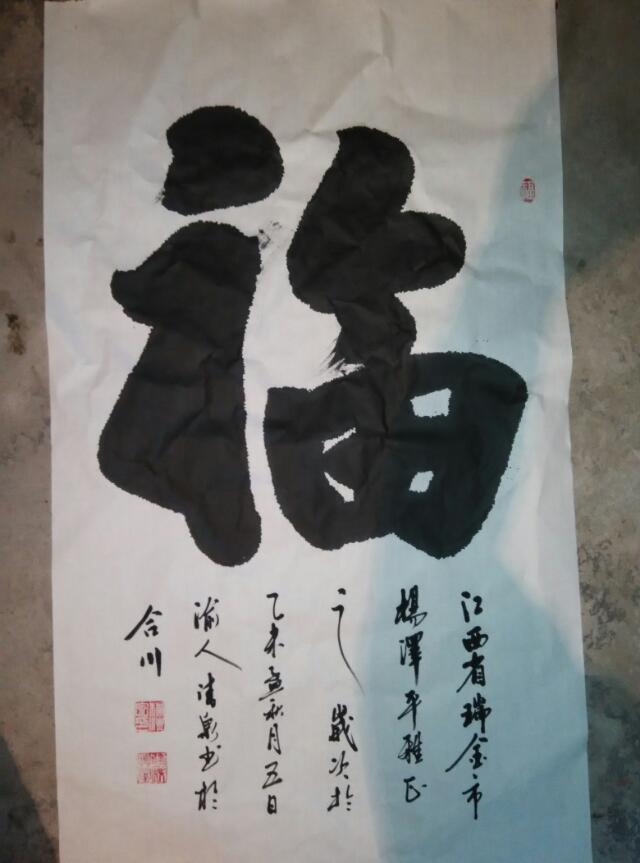 福
江西省瑞金市
楊澤平雅正
之 歲次於
乙未孟秋月五日
渝人清泉书於
合川